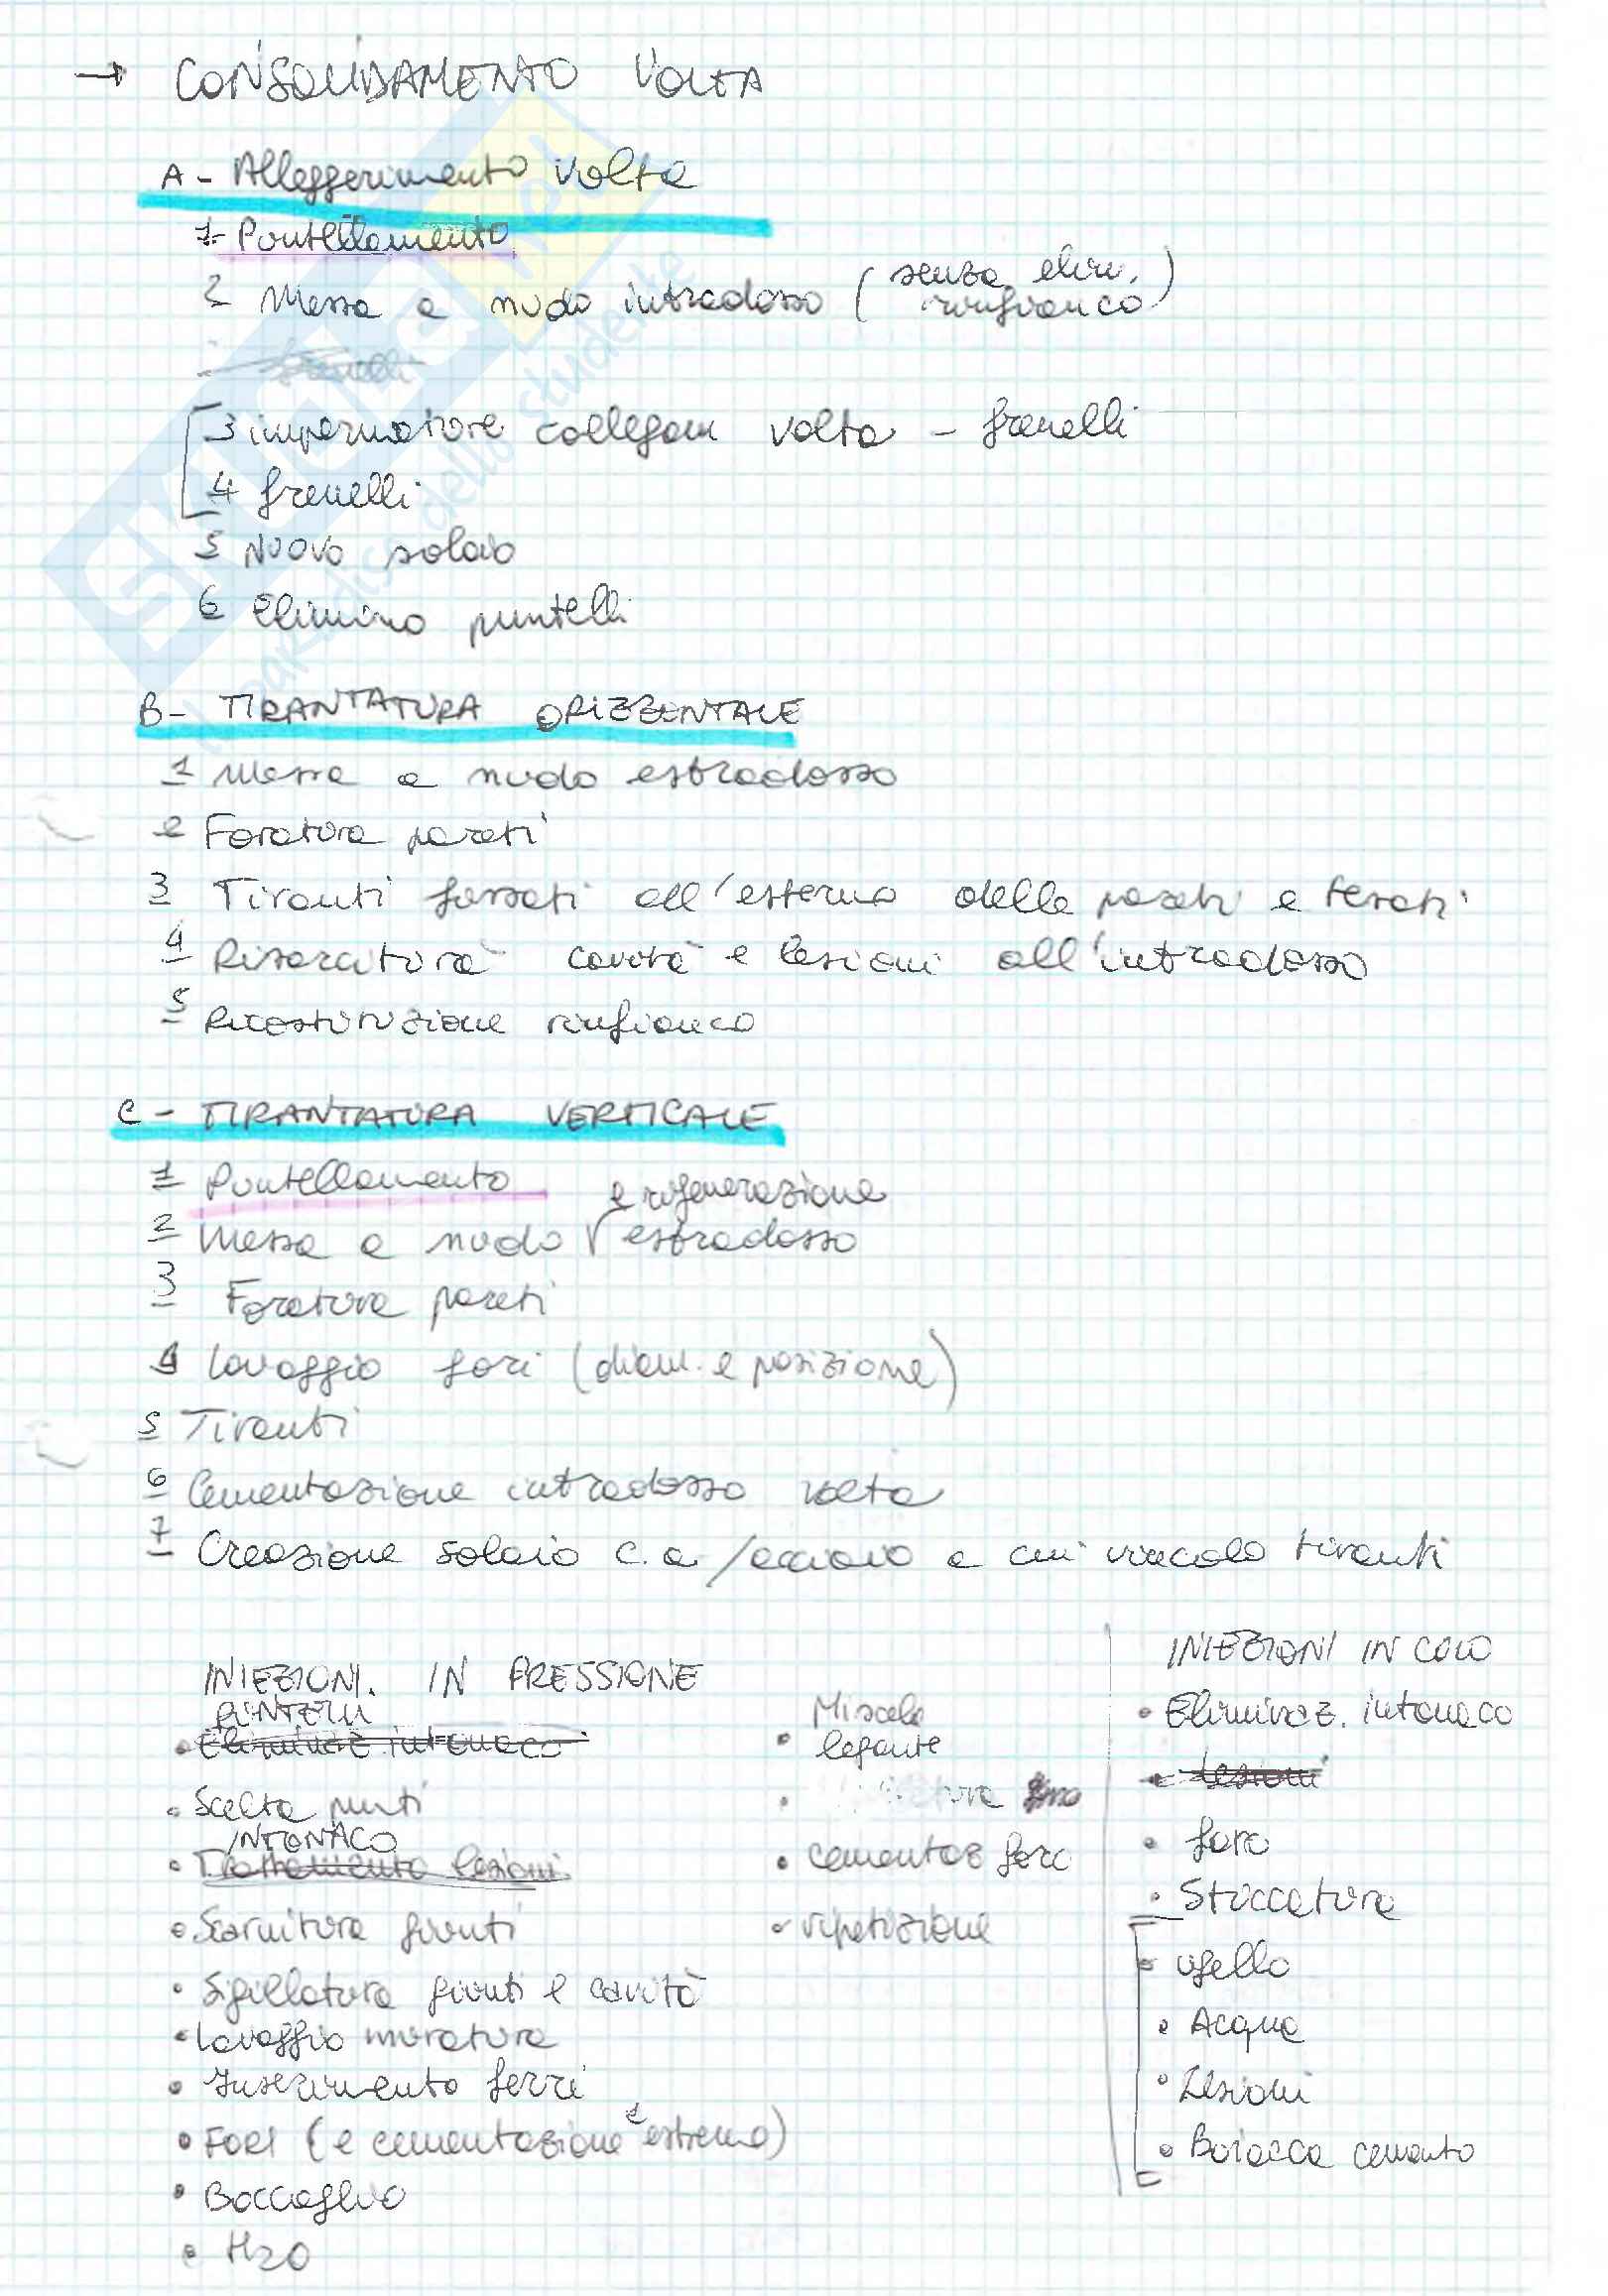 → CONSOLIDAMENTO VOLTA
A - Alleggerimento volta
1- Puntellamento
2 Messa a nudo intradosso (senza elim. rinfianco)
3 impermatore collegam volta - frenelli
4 frenelli
5 NUOVO solaio
6 Elimino puntelli
B- TIRANTATURA ORIZZONTALE
1 Messa a nudo estradosso
2 Foratura pareti
3 Tiranti fissati all'esterno delle pareti e tesati
4 Risarcitura cavità e lesioni all'intradosso
5 Ricostruzione rinfianco
C - TIRANTATURA VERTICALE
1 Puntellamento
e rigenerazione
2 Messa a nudo √ estradosso
3 Foratura pareti
4 lavaggio fori (diam. e posizione)
5 Tiranti
6 Cementazione intradosso volta
7 Creazione solaio c.a/acciaio a cui vincolo tiranti
INIEZIONI. IN PRESSIONE
PUNTELLI
• Eliminaz. intonaco
• Scelta punti
INTONACO
• Trattamento lesioni
• Scarnitura giunti
• Sigillatura giunti e cavità
• lavaggio muratura
• Inserimento ferri
• FORI (e cementazione 1 estremo)
• Boccaglio
• H2O
Miscela
• legante
• cementaz foro
• ripetizione
INIEZIONI IN COLO
• Eliminaz. intonaco
• Lesioni
• foro
• Stuccatura
• ugello
• Acqua
• Lesioni
• Boiacca cemento
STUDENTI
il paradiso dello studente